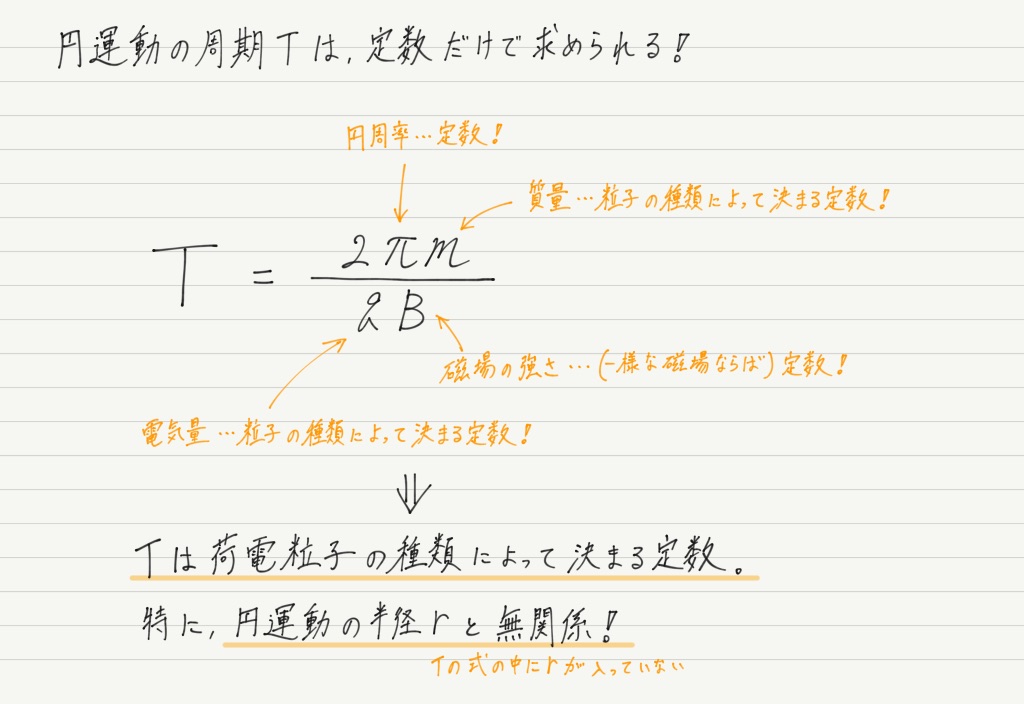 円運動の周期Tは,定数だけで求められる!
円周率…定数!
質量…粒子の種類によって決まる定数!
T = 2πm / qB
磁場の強さ…(一様な磁場ならば)定数!
電気量…粒子の種類によって決まる定数!
⇓
Tは荷電粒子の種類によって決まる定数。
特に,円運動の半径rと無関係!
Tの式の中にrが入っていない